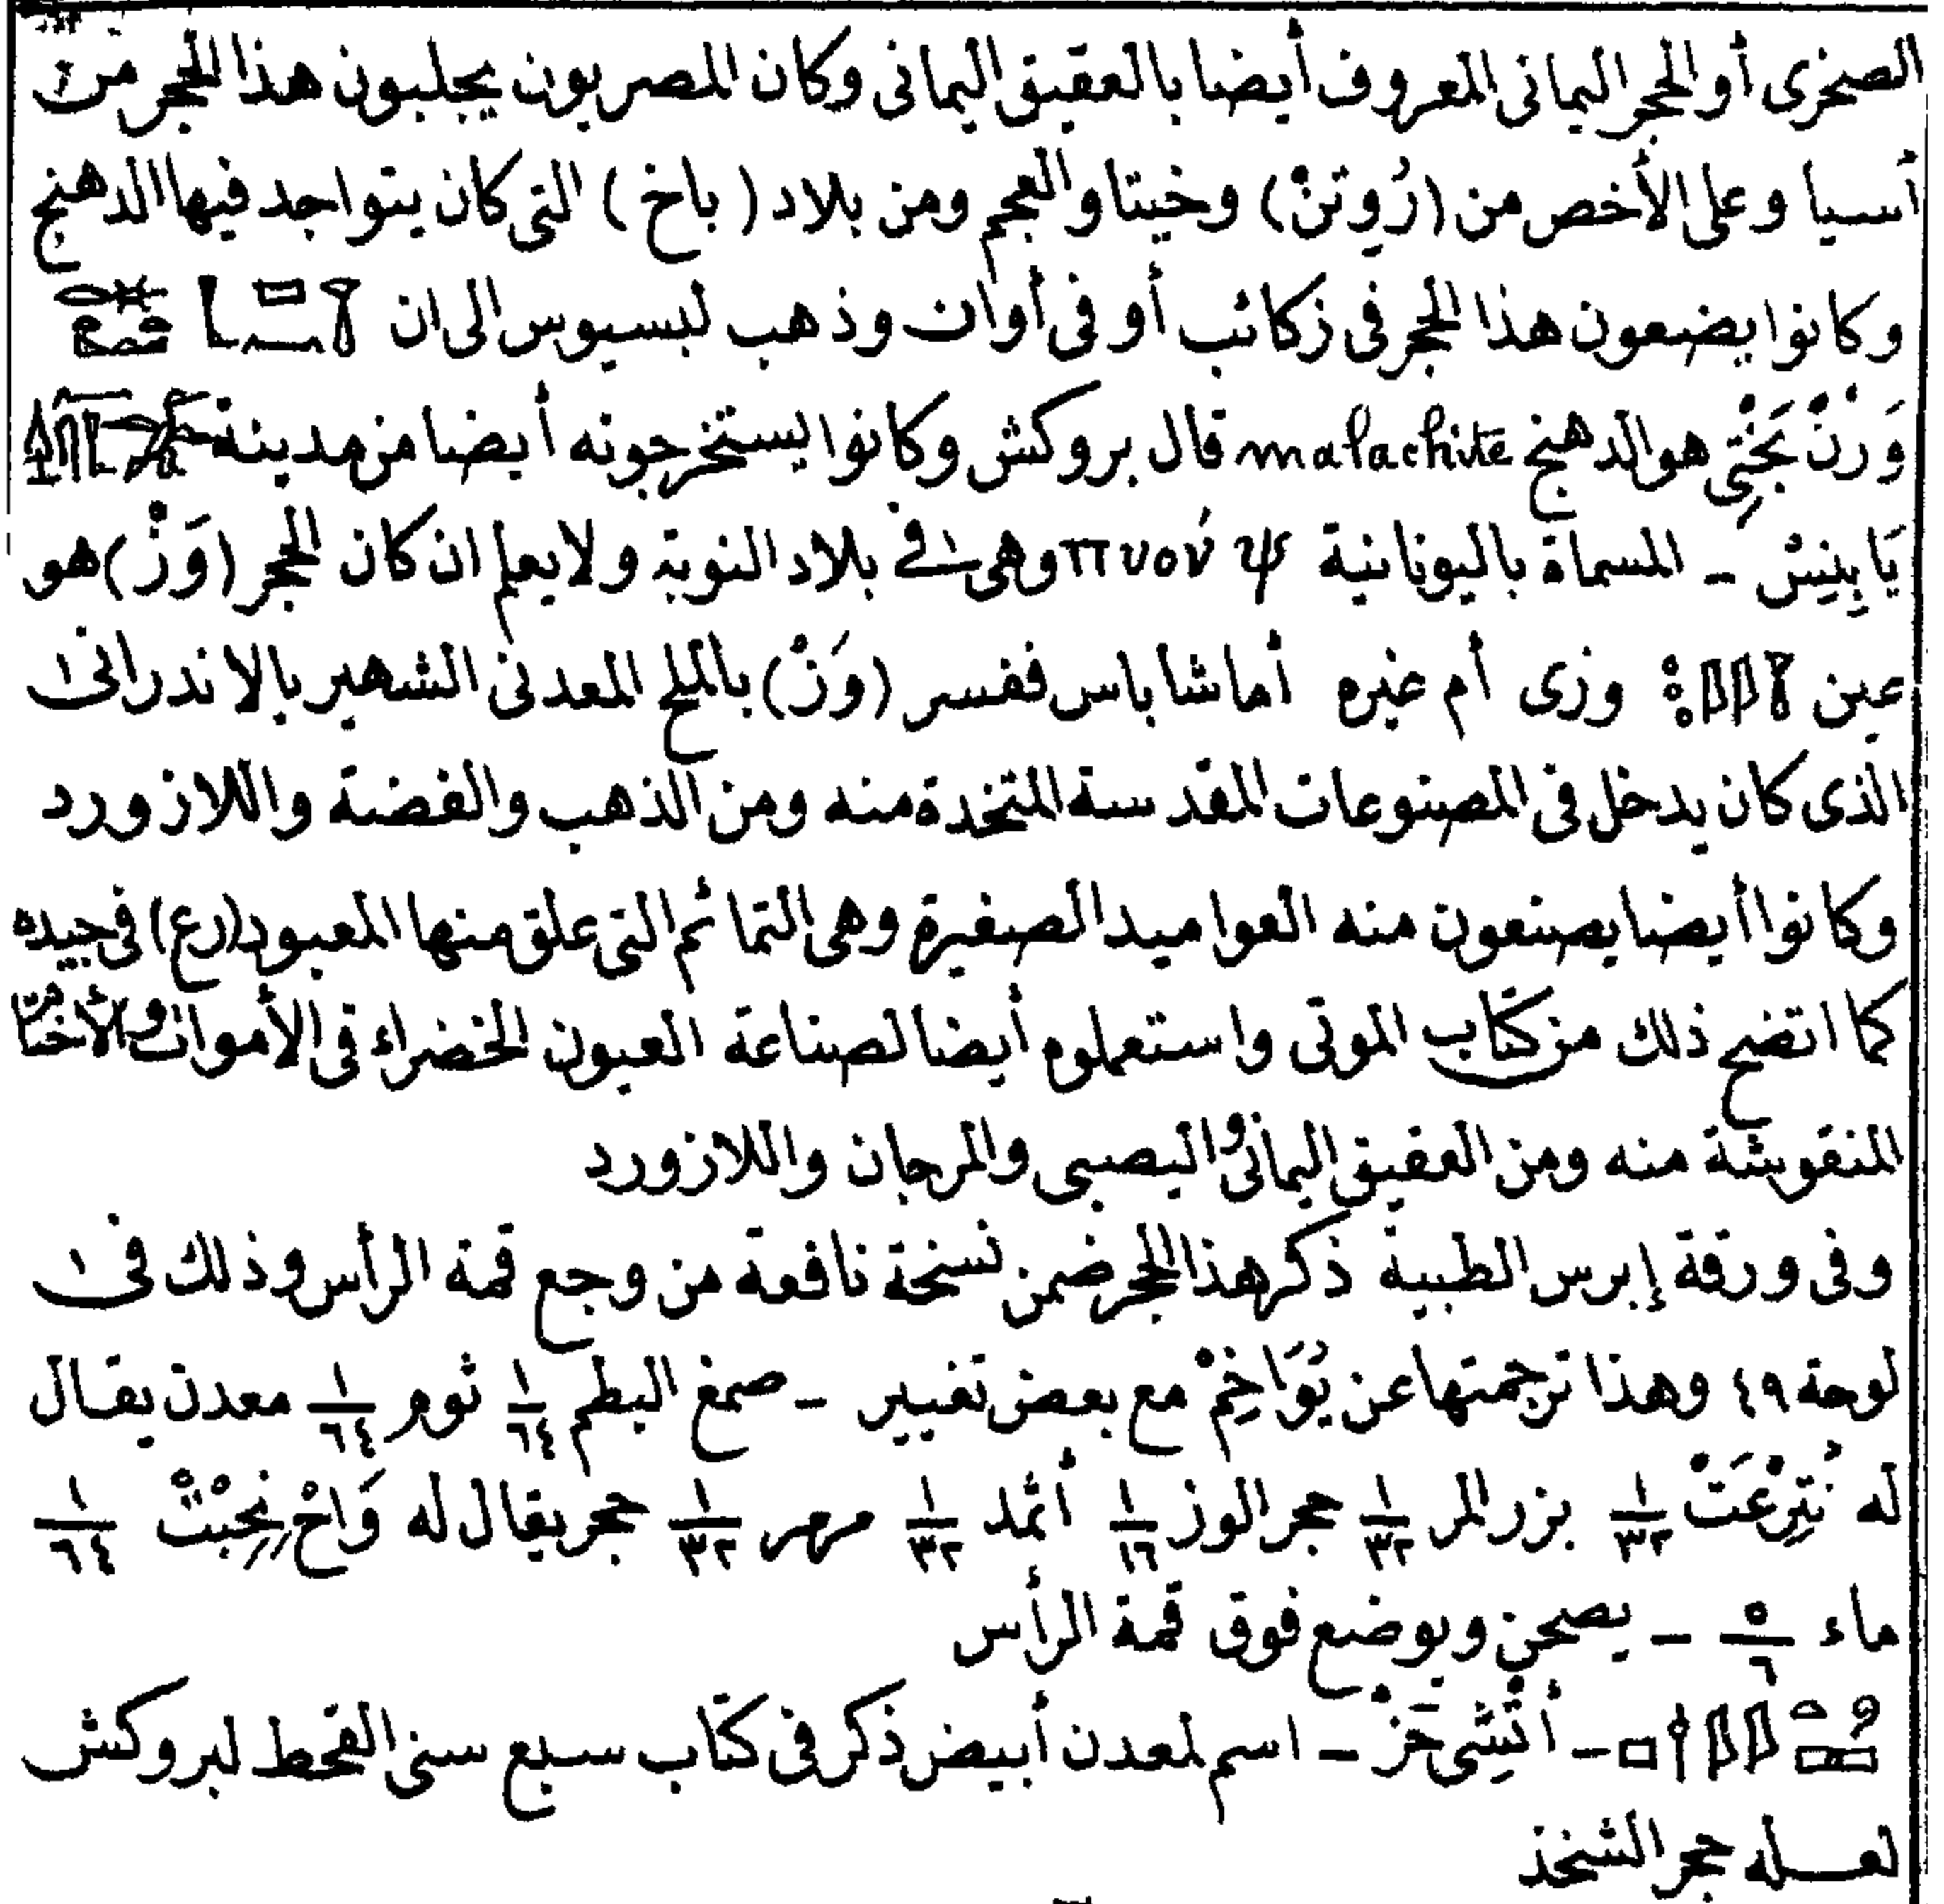 الصخرى أو الحجر اليمانى المعروف أيضا بالعقيق اليمانى وكان المصريون يجلبون هذا الحجر من
أسيا وعلى الأخص من (رُوتِنْ) وخيتا والعجم ومن بلاد (باخ) التى كان يتواجد فيها الدهنج
وكانوا يضعون هذا الحجر فى زكائب أو فى أوان وذهب لبسيوس الى ان
وَرنْ بَخْتِى هو الدهنج malachite قال بروكش وكانوا يستخرجونه أيضا من مدينة
يَا بِنِسْ - المسماة باليونانية πνούψ وهى فى بلاد النوبة ولا يعلم ان كان الحجر (وَزْ) هو
عين وزى أم غيره أما شاباس ففسر (وَزْ) بالملح المعدنى الشهير بالاندرانى
الذى كان يدخل فى المصنوعات المقدسة المتخذة منه ومن الذهب والفضة واللازورد
وكانوا أيضا يصنعون منه العواميد الصغيرة وهى التمائم التى علق منها المعبود (رع) فى جيده
كما اتضح ذلك من كتاب الموتى واستعملوه أيضا لصناعة العيون الخضراء فى الأموات والأختام
المنقوشة منه ومن العقيق اليمانى واليصبى والمرجان واللازورد
وفى ورقة إبرس الطبية ذكر هذا الحجر ضمن نسخة نافعة من وجع قمة الرأس وذلك فى
لوحة ٤٩ وهذا ترجمتها عن يُوَاخِمْ مع بعض تغيير - صمغ البطم ١/٦٤ ثوم ١/٦٤ معدن يقال
له نُتِرْعَتْ ١/٣٢ بزر المر ١/٣٢ حجر الوز ١/١٦ أثمد ١/٣٢ مرهر ١/٣٢ حجر يقال له وَاحْ ١/٦٤
ماء ٥/٦ - يصحن ويوضع فوق قمة الرأس
- أَنْشِى حَزْ - اسم لمعدن أبيض ذكر فى كتاب سبع سنى القحط لبروكش
لعله حجر الشنخذ